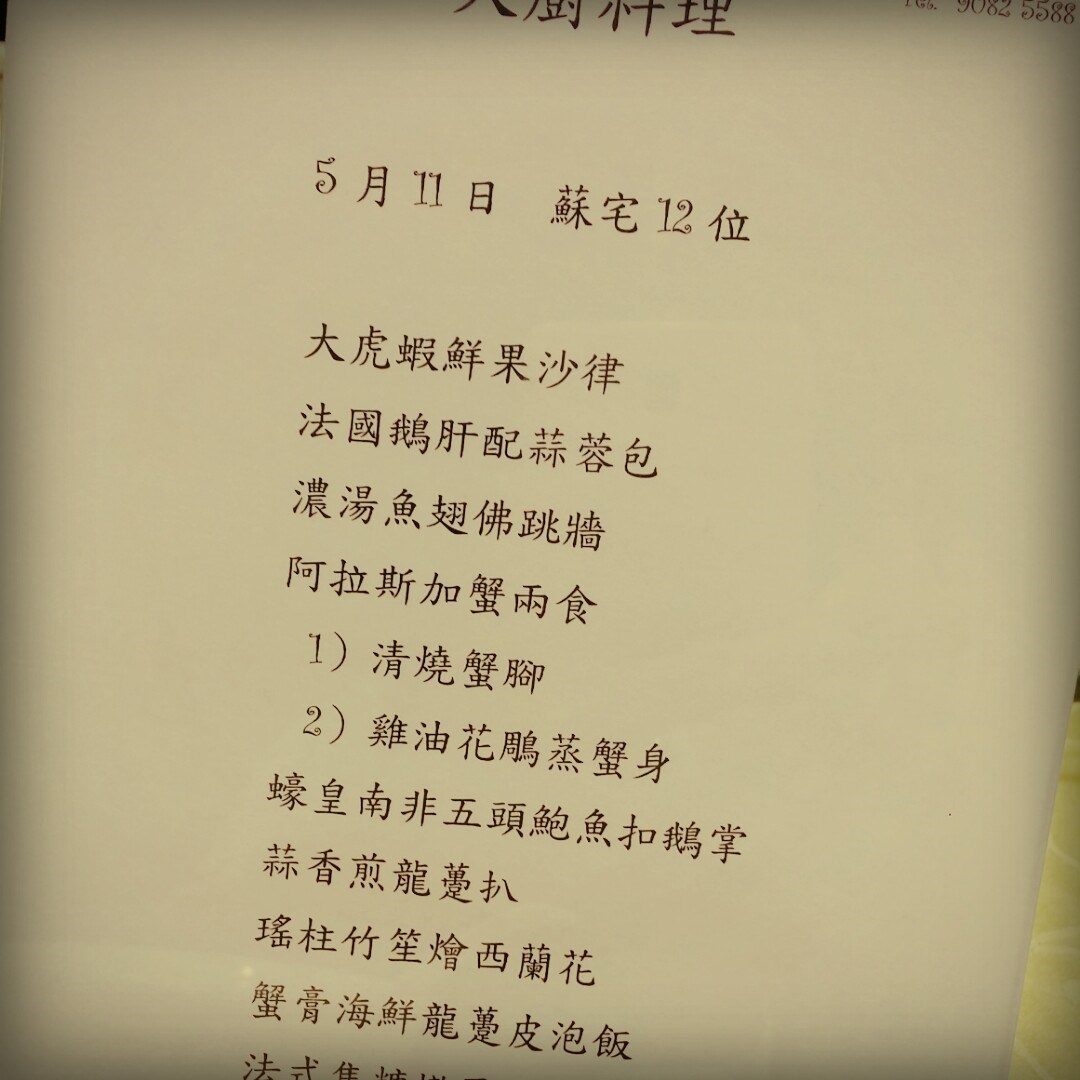 大廚料理
TEL. 9082 5588
5月11日 蘇宅12位
大虎蝦鮮果沙律
法國鵝肝配蒜蓉包
濃湯魚翅佛跳牆
阿拉斯加蟹兩食
1）清燒蟹腳
2）雞油花鵰蒸蟹身
蠔皇南非五頭鮑魚扣鵝掌
蒜香煎龍躉扒
瑤柱竹笙燴西蘭花
蟹膏海鮮龍躉皮泡飯
法式焦糖